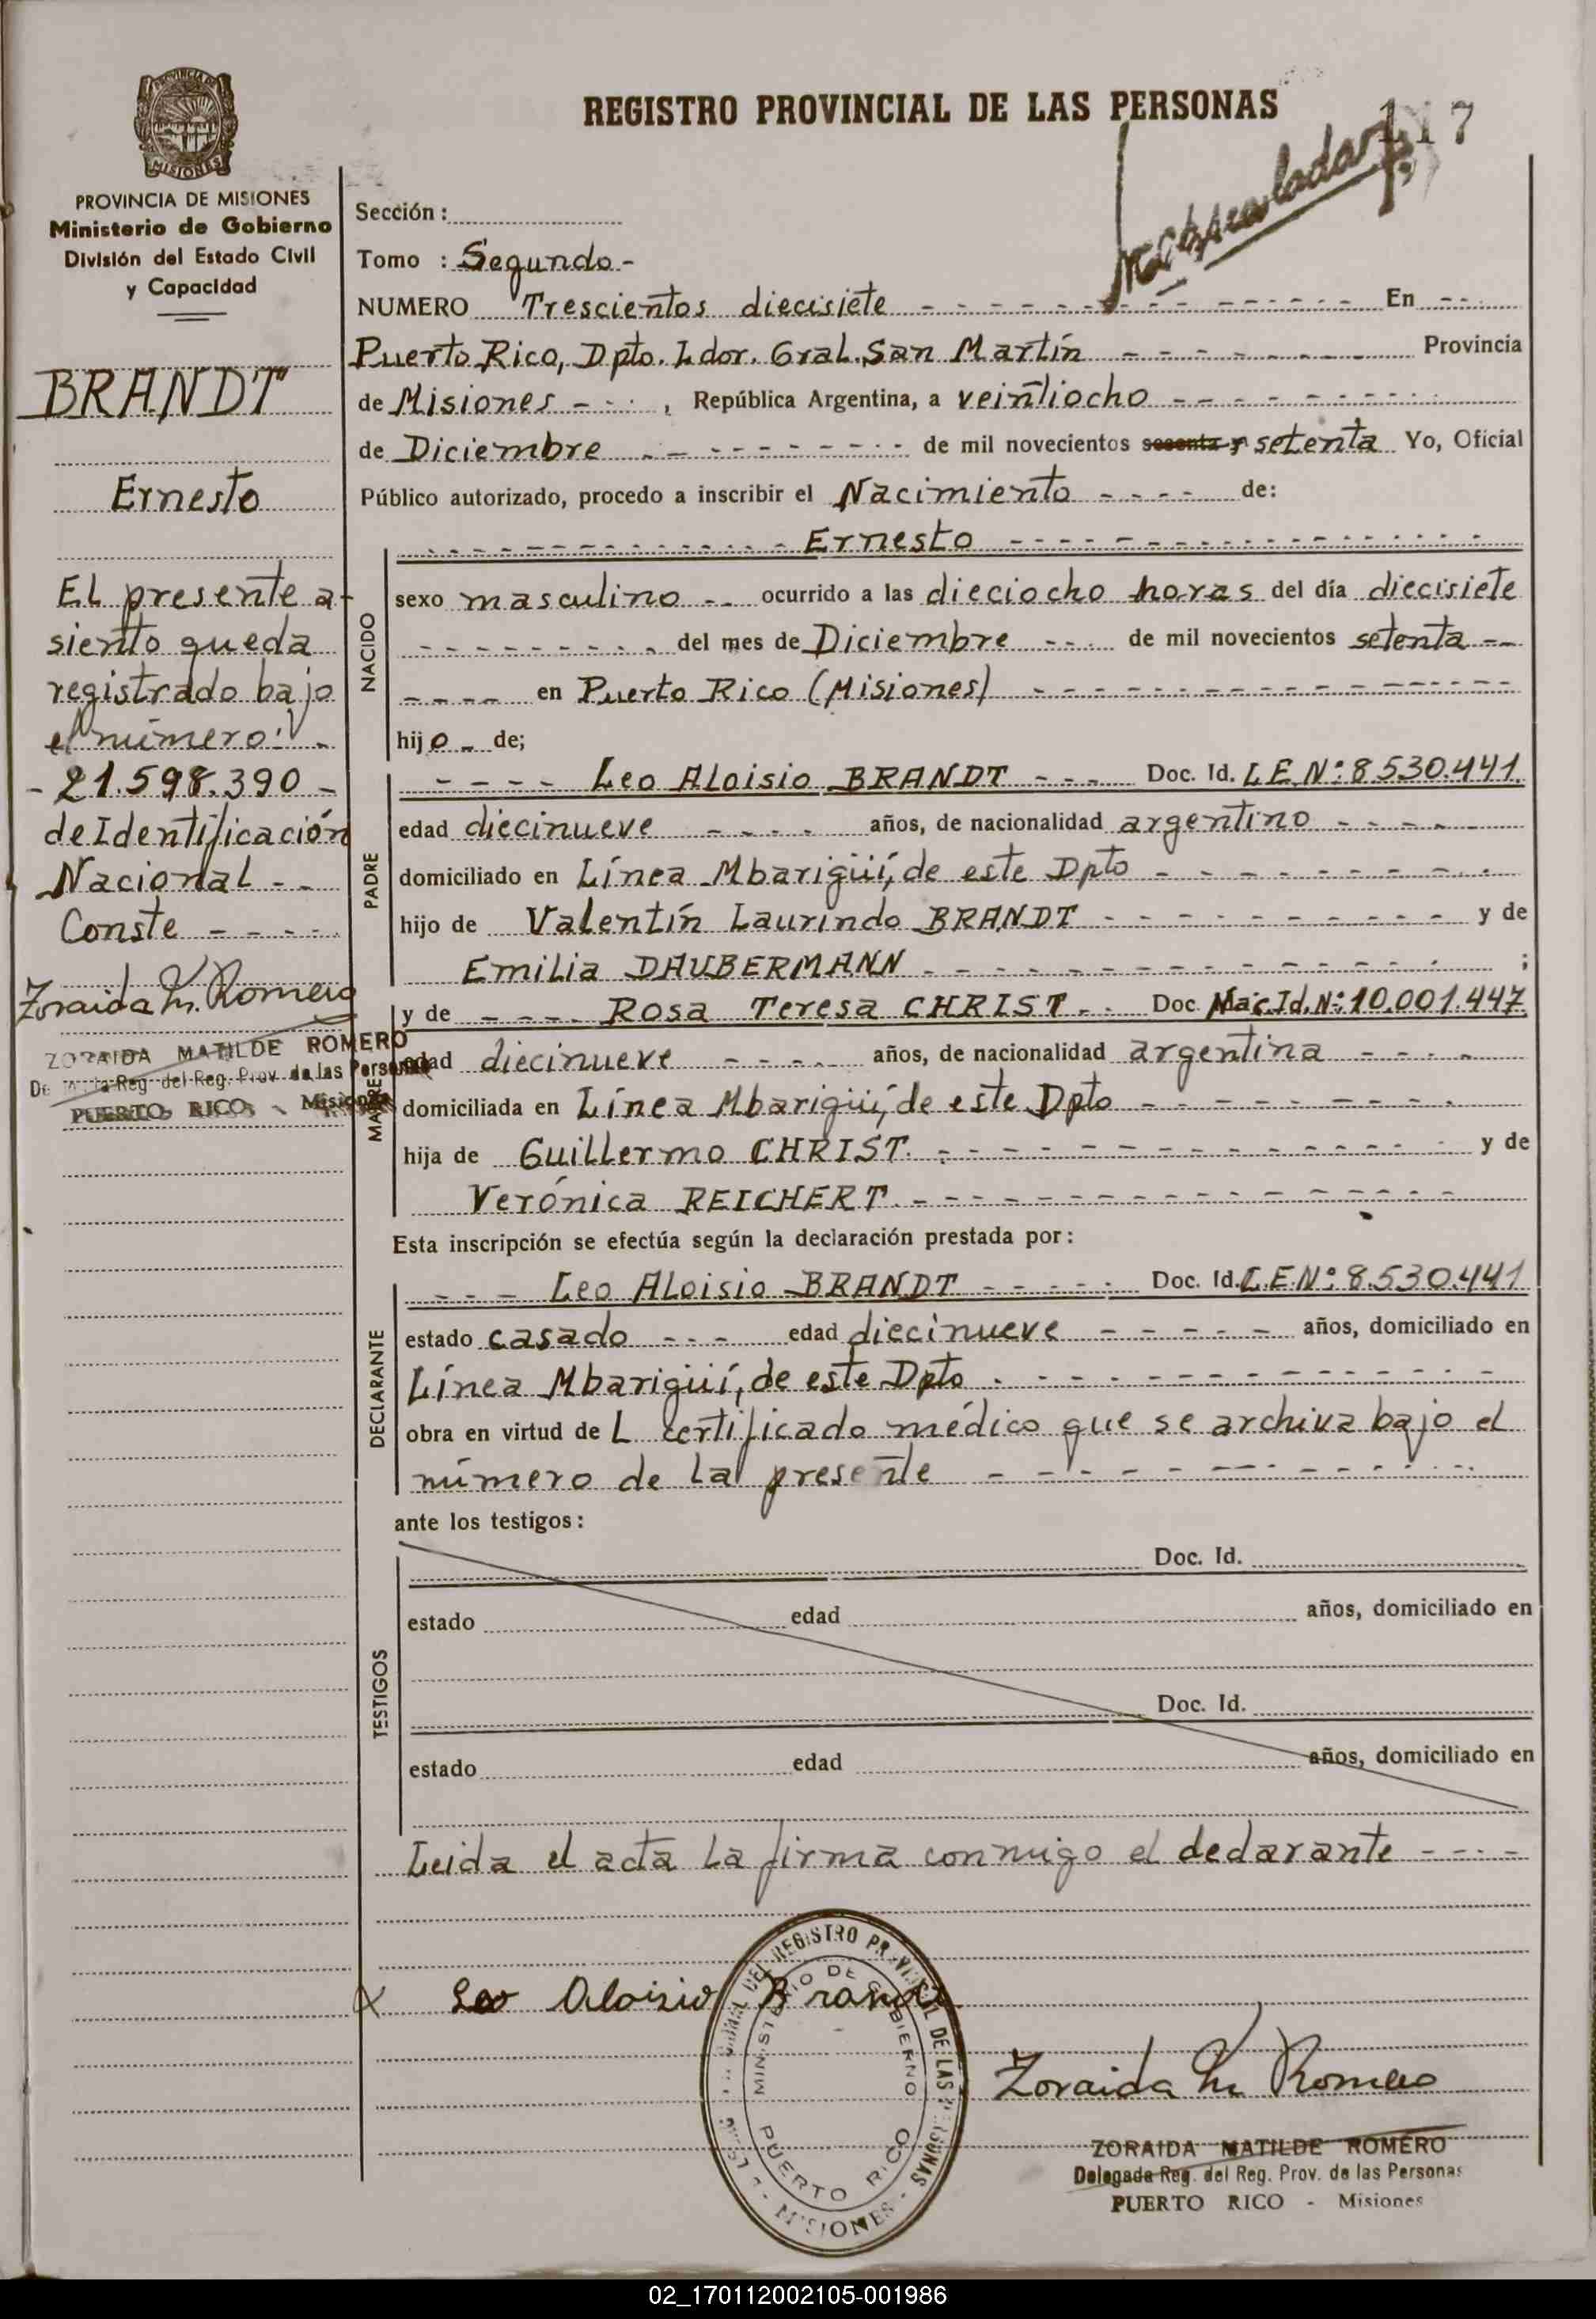 REGISTRO PROVINCIAL DE LAS PERSONAS
117
MISIONES
PROVINCIA DE MISIONES
Ministerio de Gobierno
División del Estado Civil
y Capacidad
BRANDT
Ernesto
El presente a-
siento queda
registrado bajo
el número:
- 21.598.390 -
de Identificación
Nacional - -
Conste - - - -
Zoraida M. Romero
ZORAIDA MATILDE ROMERO
Reg. del Reg. Prov. de las Personas
PUERTO RICO - Misiones
Sección :
Tomo : Segundo -
NUMERO Trescientos diecisiete - - - En - -
Puerto Rico, Dpto. Ldor. Gral. San Martín - - - Provincia
de Misiones - - - , República Argentina, a veintiocho - - -
de Diciembre - - - de mil novecientos sesenta y setenta Yo, Oficial
Público autorizado, procedo a inscribir el Nacimiento - - - - de:
NACIDO
- - - Ernesto - - -
sexo masculino - - ocurrido a las dieciocho horas del día diecisiete
- - - del mes de Diciembre - - - de mil novecientos setenta - -
- - - - en Puerto Rico (Misiones) - - -
hijo - de;
PADRE
- - - - Leo Aloisio BRANDT - - - Doc. Id. L.E.Nº: 8.530.441.
edad diecinueve - - - - años, de nacionalidad argentino - - -
domiciliado en Línea Mbarigüí, de este Dpto - - -
hijo de Valentín Laurindo BRANDT - - - y de
Emilia DAUBERMANN - - - ;
MADRE
y de - - - - Rosa Teresa CHRIST - - Doc. Nac. Id. Nº: 10.001.447
edad diecinueve - - - - años, de nacionalidad argentina - - -
domiciliada en Línea Mbarigüí, de este Dpto - - -
hija de Guillermo CHRIST. - - - y de
Verónica REICHERT. - - -
Esta inscripción se efectúa según la declaración prestada por :
DECLARANTE
- - - Leo Aloisio BRANDT - - - Doc. Id. L.E.Nº: 8.530.441
estado casado - - - edad diecinueve - - - años, domiciliado en
Línea Mbarigüí, de este Dpto . - - -
obra en virtud de L certificado médico que se archiva bajo el
número de la presente - - -
ante los testigos :
TESTIGOS
Doc. Id.
estado edad años, domiciliado en
Doc. Id.
estado edad años, domiciliado en
Leida el acta la firma conmigo el declarante - - - -
x Leo Aloisio Brandt
REGISTRO PROVINCIAL DE LAS PERSONAS
MINISTERIO DE GOBIERNO
PUERTO RICO
- MISIONES -
Zoraida M. Romero
ZORAIDA MATILDE ROMERO
Delegada Reg. del Reg. Prov. de las Personas
PUERTO RICO - Misiones
02_170112002105-001986